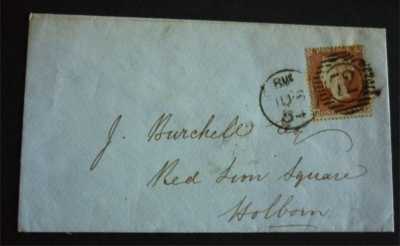 72
J. Burchell Esq
Red Lion Square
Holborn